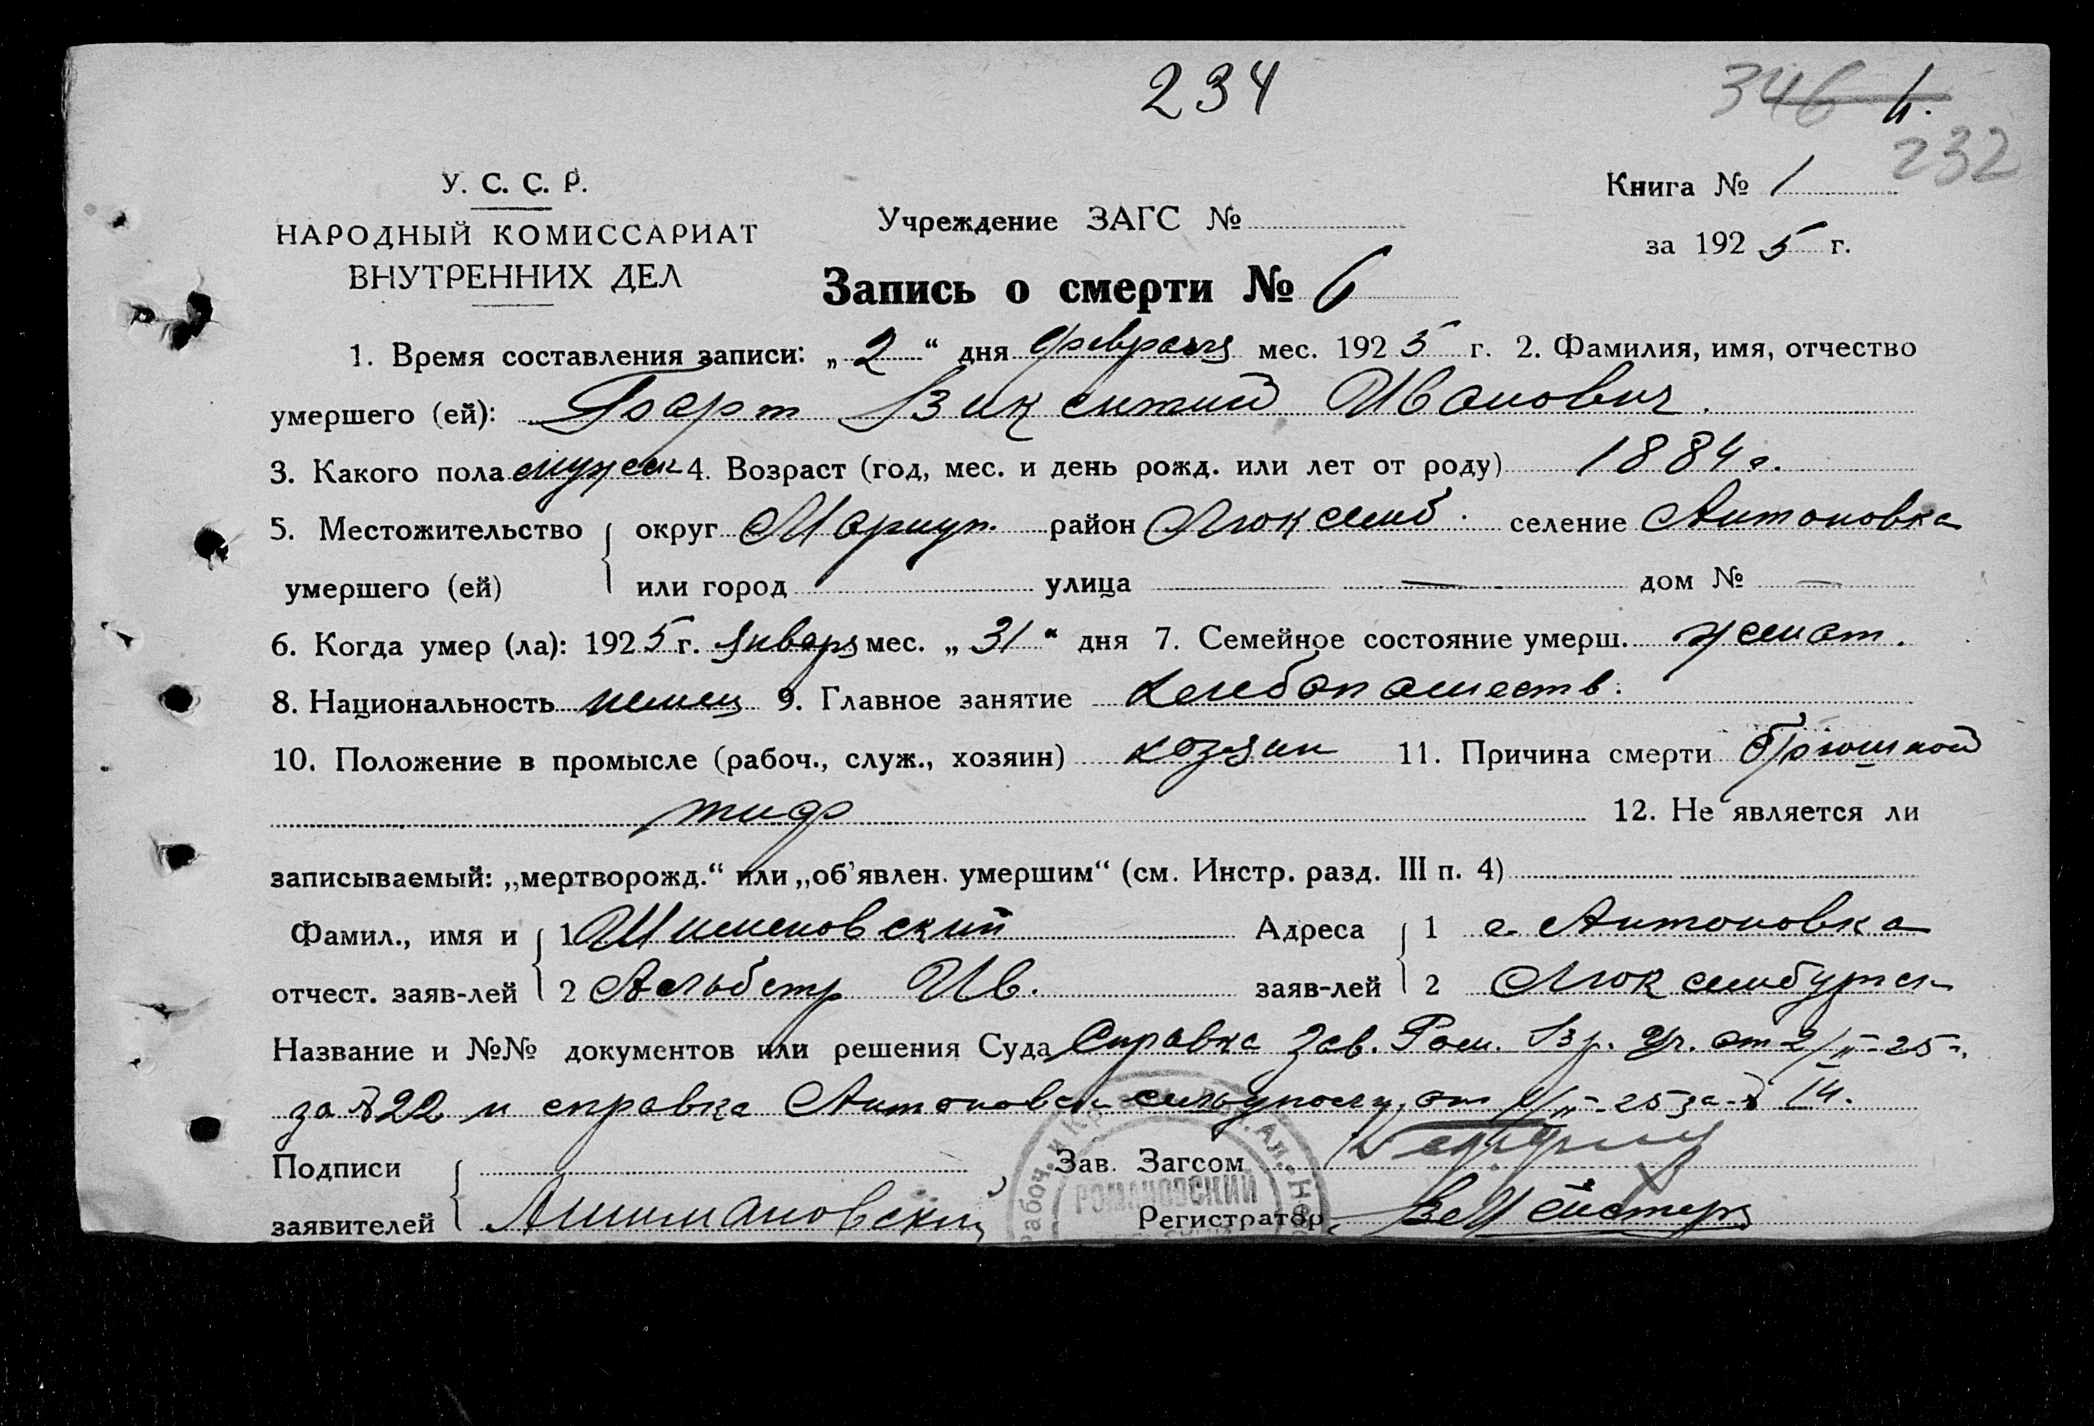 234
346 h.
232
У. С. С. Р.
НАРОДНЫЙ КОМИССАРИАТ
ВНУТРЕННИХ ДЕЛ
Учреждение ЗАГС №
Книга № 1
за 1925 г.
Запись о смерти № 6
1. Время составления записи: „2“ дня февраля мес. 1925 г. 2. Фамилия, имя, отчество
умершего (ей): Викентий Иванович.
3. Какого пола мужск 4. Возраст (год, мес. и день рожд. или лет от роду) 1884 г.
5. Местожительство округ Мариуп. район Люксемб. селение Антоновка
умершего (ей) или город улица — дом № —
6. Когда умер (ла): 1925 г. Января мес. „31“ дня 7. Семейное состояние умерш. женат.
8. Национальность немец 9. Главное занятие хлебопашеств.
10. Положение в промысле (рабоч., служ., хозяин) хозяин 11. Причина смерти брюшной
тиф 12. Не является ли
записываемый: „мертворожд.“ или „об'явлен. умершим“ (см. Инстр. разд. III п. 4)
Фамил., имя и 1 Шимановский Адреса 1 с. Антоновка
отчест. заяв-лей 2 Альберт Ив. заяв-лей 2 Люксембургск
Название и №№ документов или решения Суда Справка Зав. Ром. Вр. Уч. от 2/II-25 г.
за № 22 и справка Антоновск сельуполн. от /II-25 за № 14.
Подписи Зав. Загсом
заявителей АШимановский Регистратор
РОМАНОВСКИЙ